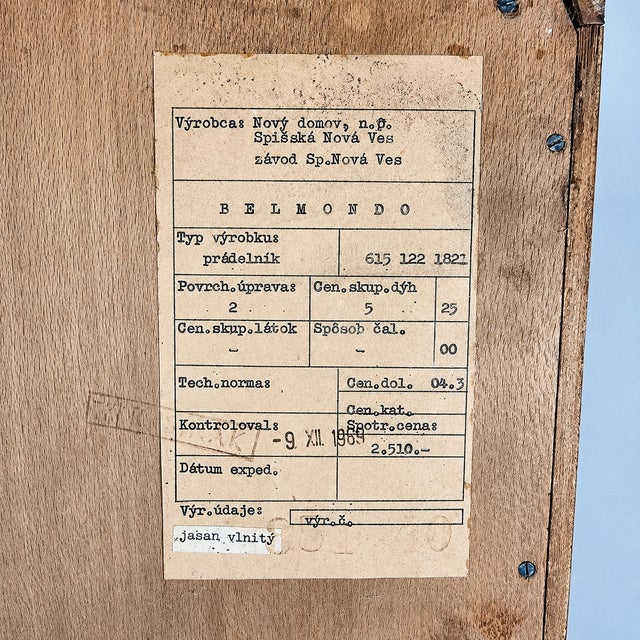 Výrobca: Nový domov, n.p.
Spišská Nová Ves
závod Sp.Nová Ves
BELMONDO
Typ výrobku:
prádelník 615 122 1821
Povrch.úprava: Cen.skup.dýh
2 5 25
Cen.skup.látok Spôsob čal.
- - 00
Tech.norma: Cen.dol. 04.3
Cen.kat.
Kontroloval: Spotr.cena:
-9. XII. 1969
2.510.-
Dátum exped.
Výr.údaje:
výr.č.
jasan vlnitý